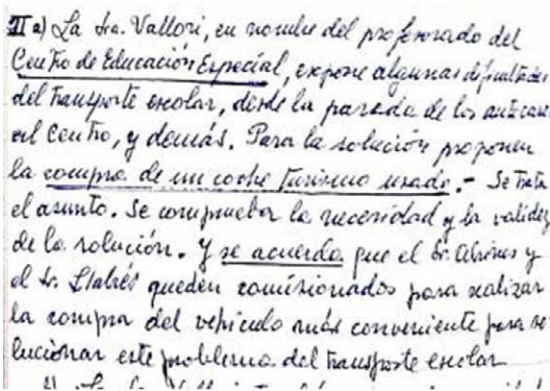 II a) La Sra. Vallori, en nombre del profesorado del
Centro de Educación Especial, expone algunas dificultades
del transporte escolar, desde la parada de los autocares
al Centro, y demás. Para la solución proponen
la compra de un coche turismo usado.- Se trata
el asunto. Se comprueba la necesidad y la validez
de la solución. Y se acuerda que el Sr. y
el Sr. Llabrés queden comisionados para realizar
la compra del vehículo más conveniente para so-
lucionar este problema del transporte escolar